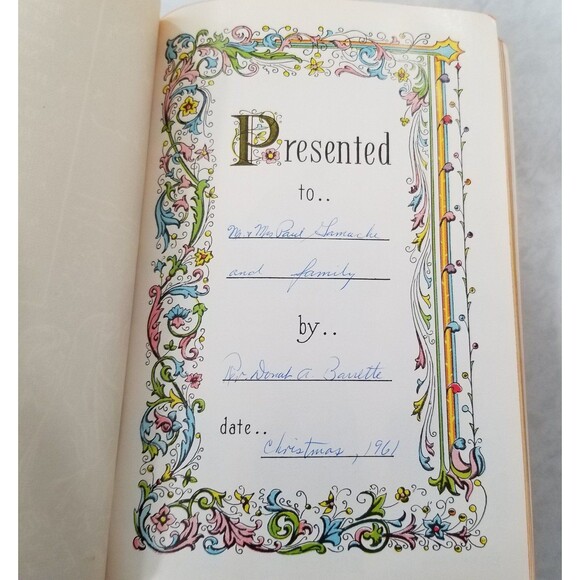 Presented
to..
Mr & Mrs Paul Gamache
and family
by..
Rev. Donat A. Barrette
date..
Christmas, 1961